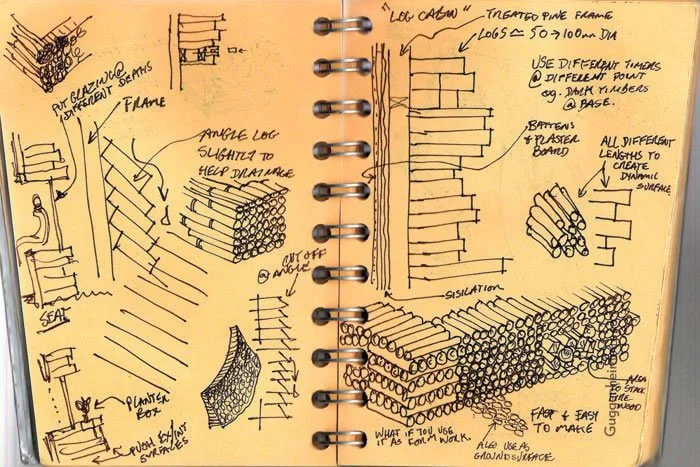 PUT GLAZING @
DIFFERENT DEPTHS
FRAME
ANGLE LOG
SLIGHTLY TO
HELP DRAINAGE
CUT OFF
@ ANGLE
SEAT
PLANTER
BOX
PUSH EX/INT
SURFACES
"LOG CABIN"
TREATED PINE FRAME
LOGS ≃ 50 → 100mm DIA
USE DIFFERENT TIMERS
@ DIFFERENT POINT
eg. DARK TIMBERS
@ BASE.
BATTENS
& PLASTER
BOARD
ALL DIFFERENT
LENGTHS TO
CREATE
DYNAMIC
SURFACE
SISILATION
AREA
TO STACK
FIRE-
WOOD
FAST & EASY
TO MAKE
WHAT IF YOU USE
IT AS FORM WORK.
ALSO USE AS
GROUND SURFACE